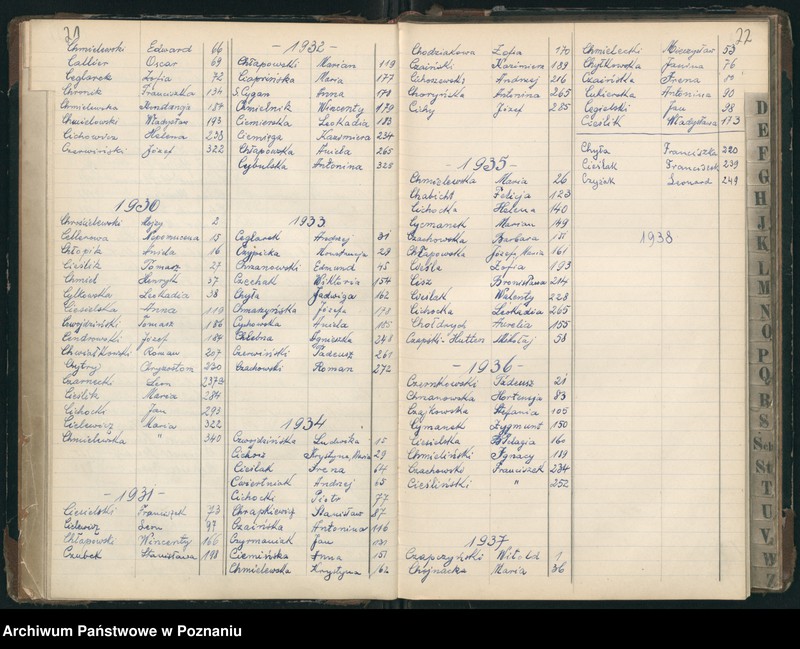 Chmielewski Edward 66
Callier Oscar 69
Ceglarek Zofia 72
Chronik Franciszka 134
Chmielewska Kondancja 184
Chmielewski Władysław 193
Cichowicz Helena 238
Czerwiński Józef 322
- 1930
Chrościelewski Alojzy 2
Cellerowa Nepomucena 15
Chłopik Aniela 16
Cieślik Tomasz 27
Chmiel Henryk 37
Cylkowska Leokadia 38
Ciesielska Anna 110
Czwojdziński Tomasz 186
Cendrowski Józef 184
Chwiałkowski Roman 207
Chytry Chryzostom 230
Czarnecki Leon 237
Cieślik Maria 284
Cichocki Jan 293
Cielewicz Maria 322
Chmielewska " 340
- 1931 -
Ciesielski Franciszek 73
Cielewicz Leon 97
Chłapowski Wincenty 166
Czubek Stanisława 198
- 1932 -
Chłapowski Marian 119
Czapińska Maria 177
Cygan Anna 178
Chmielnik Wincenty 179
Ciemierska Leokadia 183
Ciemięga Kazimiera 234
Chłapowska Aniela 265
Cybulska Antonina 328
1933
Ceglarek Andrzej 31
Czypicka Konstancja 29
Chrzanowski Edmund 45
Czechak Wiktoria 154
Chyła Jadwiga 162
Chmarzyńska Józefa 178
Cychowska Aniela 185
Chlebna Agnieszka 248
Czerwiński Tadeusz 261
Czachowski Roman 272
1934
Czwojdzińska Ludwika 15
Cichosz Krystyna, Maria 29
Cieślak Irena 64
Ćwiertniak Andrzej 65
Cichocki Piotr 77
Chrapkiewicz Stanisław 87
Czaińska Antonina 116
Czyrmaniak Jan
Ciemińska Anna 151
Chmielewska Krystyna 162
Chodziakowa Zofia 170
Czaiński Kazimierz 189
Cichoszewski Andrzej 216
Choryńska Antonina 265
Cichy Józef 285
- 1935 -
Chmielewska Maria 26
Chabicht Felicja 123
Cichocka Helena 140
Cycmanek Marian 149
Czachowska Barbara 151
Chłapowska Józefa, Maria 161
Cieśla Zofia 193
Cisz Bronisława 214
Cieślak Walenty 228
Cichocka Leokadia 265
Chołdrych Aurelia 155
Czapski-Hutten Mikołaj 58
- 1936 -
Czarnkowski Tadeusz 21
Chrzanowska Hortensja 83
Czajkowska Stefania 105
Cymanek Zygmunt 150
Ciesielska Pelagia 160
Chmieliński Ignacy 189
Czachowski Franciszek 234
Cieśliński " 252
1937
Czapczyński Witold 1
Chojnacka Maria 36
22
Chmielecki Mieczysław 53
Chytkowska Janina 76
Czaińska Irena
Cukierska Antonina 90
Cegielski Jan 98
Cieślik Władysława 173
Chyła Franciszka 220
Cieślak Franciszek 239
Czyżak Leonard 249
1938
D
E
F
G
H
J
K
L
M
N
O
P
Q
R
S
Sch
St
T
U
V
W
Z
Archiwum Państwowe w Poznaniu